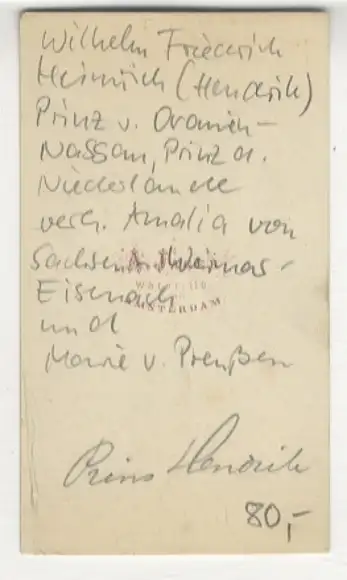 Wilhelm Friedrich
Heinrich (Hendrik)
Prinz v. Oranien-
Nassau, Prinz d.
Niederlande
verh. Amalia von
Sachsen-Weimar-
Eisenach
AMSTERDAM
und
Marie v. Preußen
Prins Hendrik
80,-